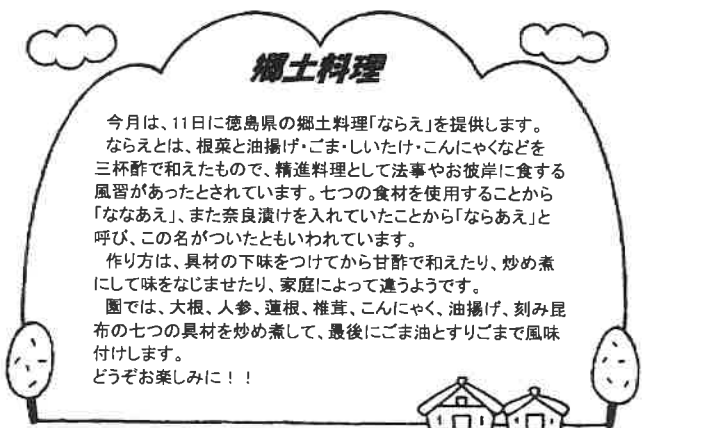 郷土料理
今月は、11日に徳島県の郷土料理「ならえ」を提供します。
ならえとは、根菜と油揚げ・ごま・しいたけ・こんにゃくなどを
三杯酢で和えたもので、精進料理として法事やお彼岸に食する
風習があったとされています。七つの食材を使用することから
「ななあえ」、また奈良漬けを入れていたことから「ならあえ」と
呼び、この名がついたともいわれています。
作り方は、具材の下味をつけてから甘酢で和えたり、炒め煮
にして味をなじませたり、家庭によって違うようです。
園では、大根、人参、蓮根、椎茸、こんにゃく、油揚げ、刻み昆
布の七つの具材を炒め煮して、最後にごま油とすりごまで風味
付けします。
どうぞお楽しみに！！